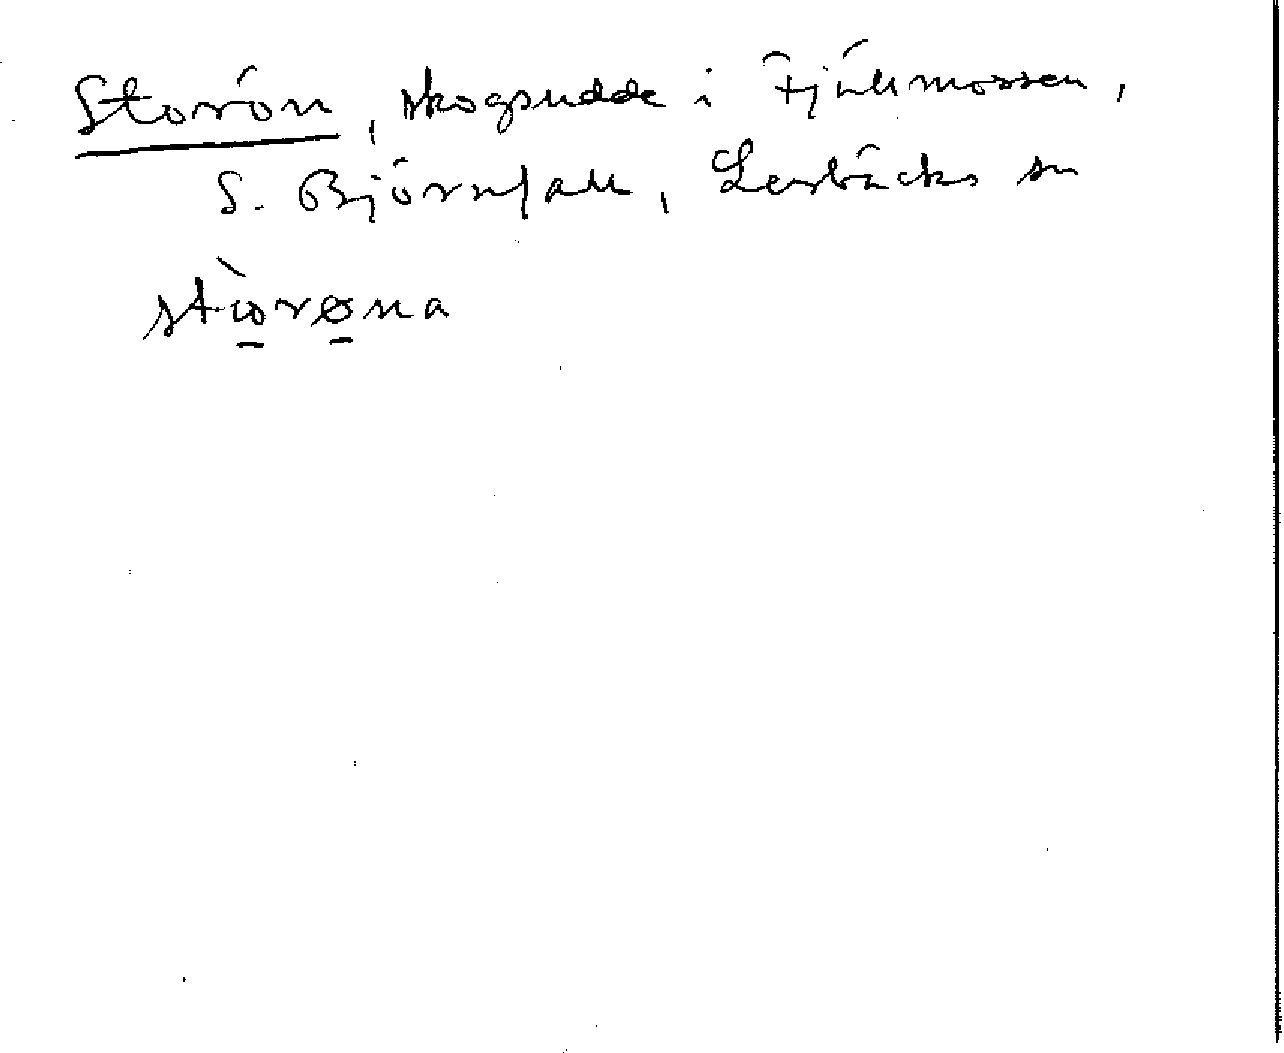 Storön, skogsudde i Fjällmossen,
S. Björnfall, Lerbäcks sn
stὼ̱rø̱na